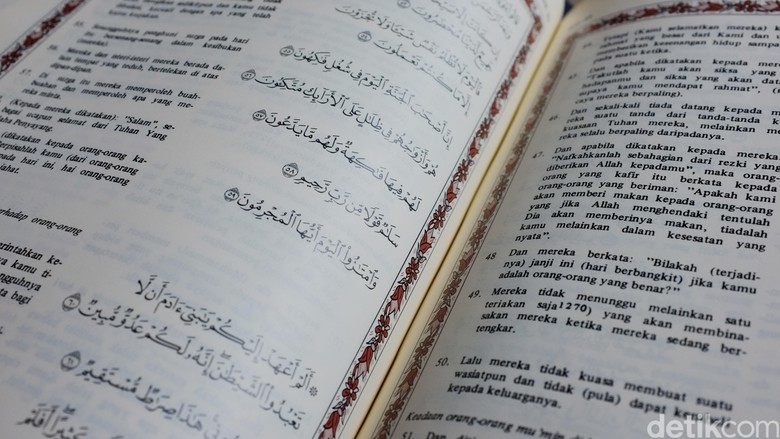 dengan apa yang telah
55. Sesungguhnya penghuni surga pada hari
itu bersenang-senang dalam kesibukan
56. Mereka dan isteri-isteri mereka berada da-
tempat yang teduh, bertelekan di atas
57. Di surga itu mereka memperoleh buah-
buahan dan memperoleh apa yang me-
(Kepada mereka dikatakan): "Salam", se-
bagai ucapan selamat dari Tuhan Yang
Penyayang.
(dikatakan kepada orang-orang ka-
(dari orang-orang
pada hari ini, hai orang-orang
terhadap orang-orang
kamu ti-
bagi
فَالْيَوْمَ لَا تُظْلَمُ نَفْسٌ شَيْئًا وَلَا تُجْزَوْنَ
إِلَّا مَا كُنْتُمْ تَعْمَلُونَ ٥٤
إِنَّ أَصْحَابَ الْجَنَّةِ الْيَوْمَ فِي شُغُلٍ فَاكِهُونَ ٥٥
هُمْ وَأَزْوَاجُهُمْ فِي ظِلَالٍ عَلَى الْأَرَائِكِ مُتَّكِئُونَ ٥٦
لَهُمْ فِيهَا فَاكِهَةٌ وَلَهُمْ مَا يَدَّعُونَ ٥٧
سَلَامٌ قَوْلًا مِنْ رَبٍّ رَحِيمٍ ٥٨
وَامْتَازُوا الْيَوْمَ أَيُّهَا الْمُجْرِمُونَ ٥٩
أَلَمْ أَعْهَدْ إِلَيْكُمْ يَا بَنِي آدَمَ أَنْ لَا
تَعْبُدُوا الشَّيْطَانَ إِنَّهُ لَكُمْ عَدُوٌّ مُبِينٌ ٦٠
هَذَا صِرَاطٌ مُسْتَقِيمٌ ٦١
44. Tetapi (Kami selamatkan mereka)
besar dari Kami dan
memberikan kesenangan hidup sampai
pada suatu ketika.
45. Dan apabila dikatakan kepada mereka
"Takutlah kamu akan siksa yang
hadapanmu dan siksa yang akan dat
kamu mendapat rahmat", (
caya mereka berpaling).
46. Dan sekali-kali tiada datang kepada
reka suatu tanda dari tanda-tanda k
kuasaan Tuhan mereka, melainkan m
reka selalu berpaling daripadanya.
47. Dan apabila dikatakan kepada mereka
"Nafkahkanlah sebahagian dari rezki yang
diberikan Allah kepadamu", maka orang
orang yang kafir itu berkata kepada
orang yang beriman: "Apakah kami
akan memberi makan kepada orang-orang
yang jika Allah menghendaki tentulah
Dia akan memberinya makan, tiadalah
kamu melainkan dalam kesesatan yang
nyata".
48 Dan mereka berkata: "Bilakah (terjadi-
nya) janji ini (hari berbangkit) jika kamu
adalah orang-orang yang benar?"
49. Mereka tidak menunggu melainkan satu
teriakan saja1270) yang akan membina-
sakan mereka ketika mereka sedang ber-
tengkar.
50. Lalu mereka tidak kuasa membuat suatu
wasiatpun dan tidak (pula) dapat
kepada keluarganya.
Keadaan orang-orang mu'min
51. Dan
detikcom